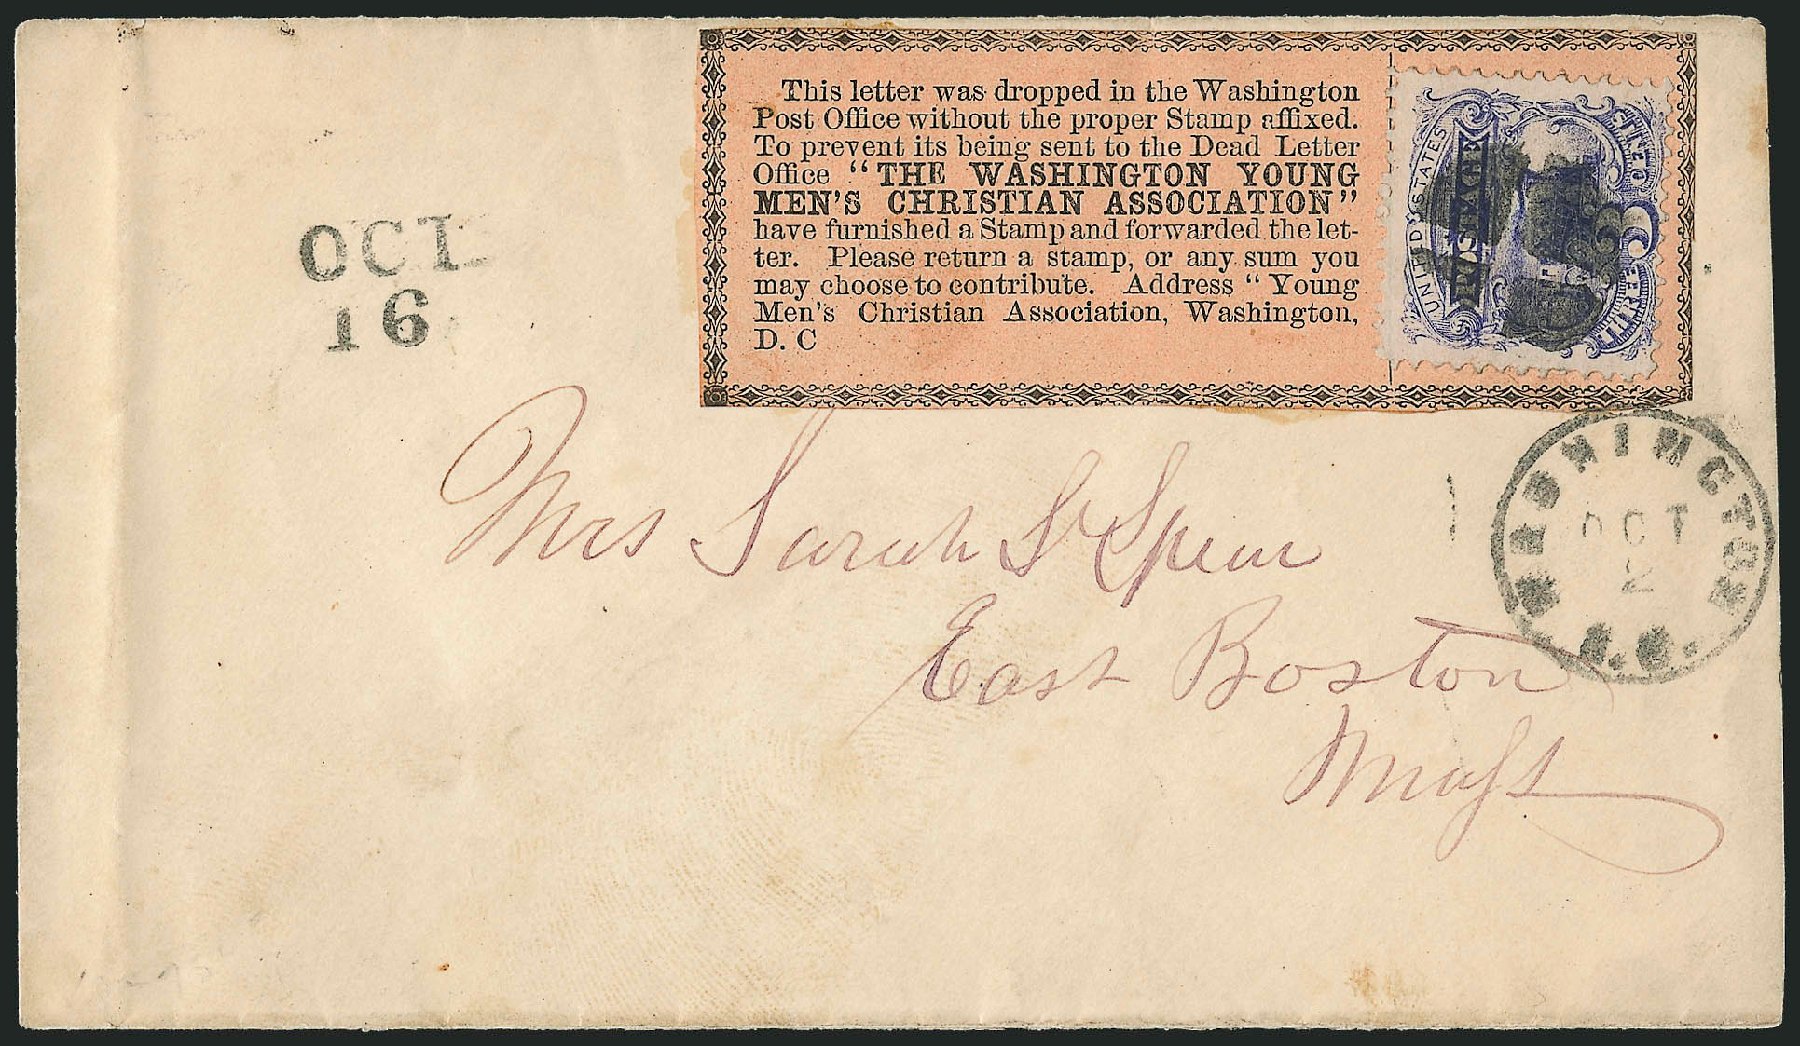 This letter was dropped in the Washington
Post Office without the proper Stamp affixed.
To prevent its being sent to the Dead Letter
Office "THE WASHINGTON YOUNG
MEN'S CHRISTIAN ASSOCIATION"
have furnished a Stamp and forwarded the let-
ter. Please return a stamp, or any sum you
may choose to contribute. Address "Young
Men's Christian Association, Washington,
D. C
UNITED STATES
POSTAGE
THREE CENTS
3
OCT
16
WASHINGTON
OCT
2
D.C.
Mrs Sarah S Spear
East Boston
Mass